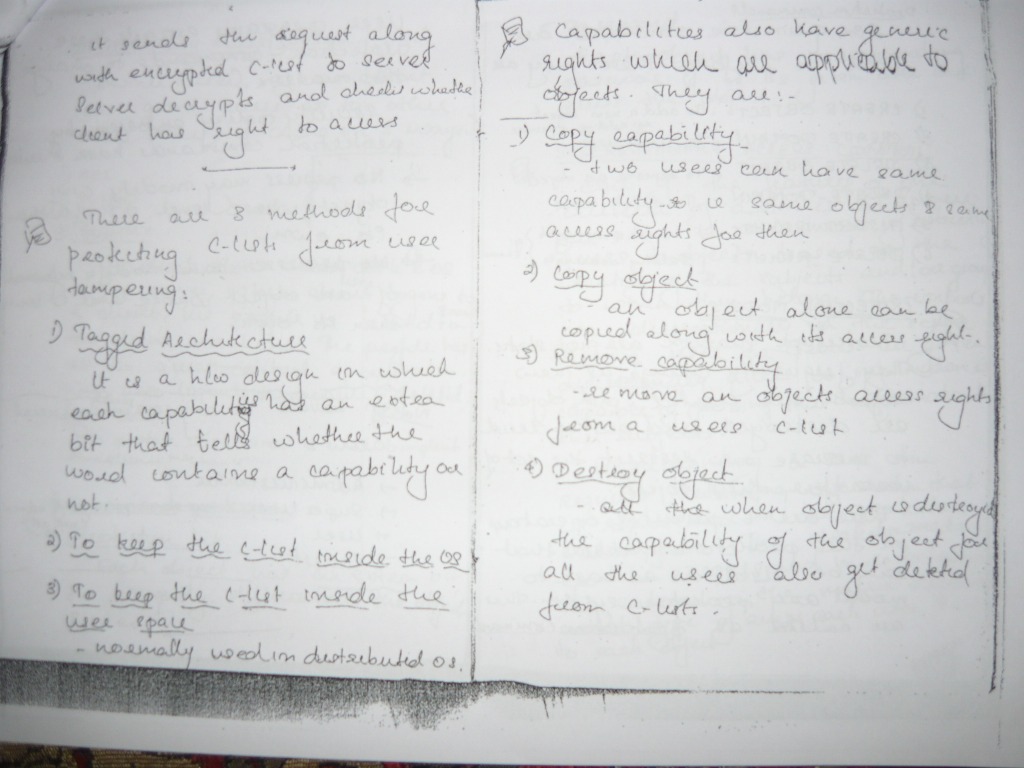 it sends the request along
with encrypted C-list to server
server decrypts and checks whether
client has right to access
There are 3 methods for
protecting C-lists from user
tampering:
1) Tagged Architecture
It is a h/w design in which
each capability has an extra
bit that tells whether the
word contains a capability or
not.
2) To keep the C-list inside the OS
3) To keep the C-list inside the
user space
- normally used in distributed OS.
Capabilities also have generic
rights which are applicable to
objects. They are:-
1) Copy capability
- two users can have same
capability ie same objects & same
access rights for them
2) Copy object
- an object alone can be
copied along with its access right.
3) Remove capability
- remove an objects access rights
from a users C-list
4) Destroy object
- all the when object is destroyed
the capability of the object for
all the users also get deleted
from C-lists.